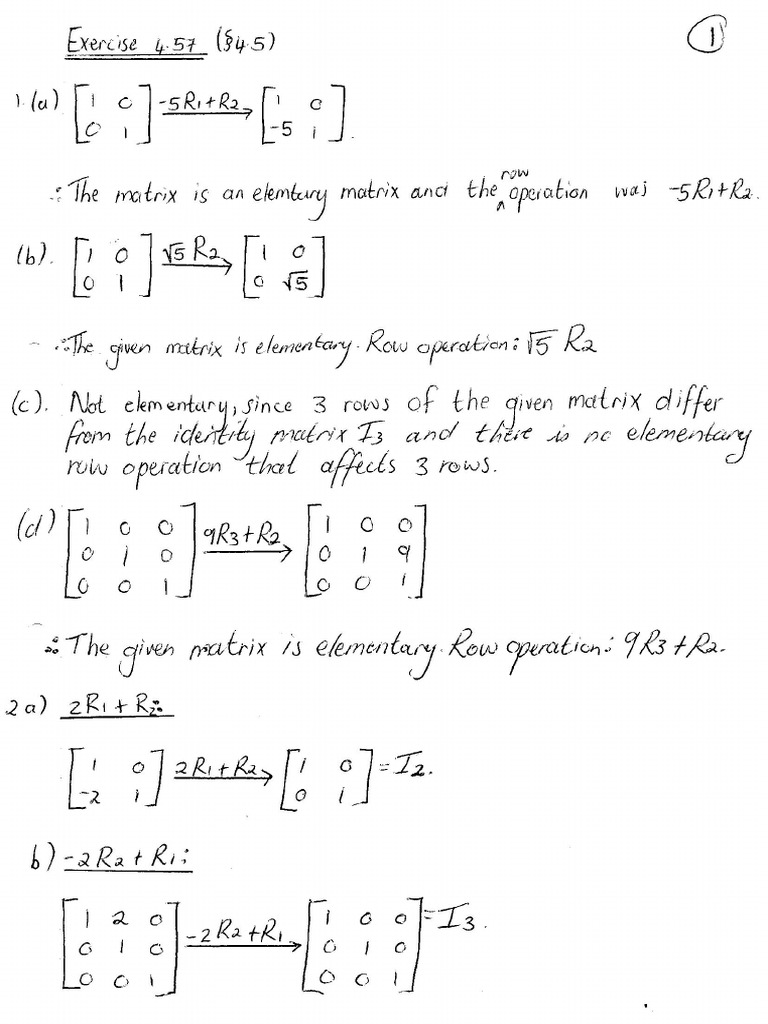 Exercise 4.57 (§4.5)
1
1.(a) [1 0; 0 1] -5R1+R2 → [1 0; -5 1].
∴ The matrix is an elemtury matrix and the row operation was -5R1+R2.
(b). [1 0; 0 1] √5 R2 → [1 0; 0 √5]
∴ The given matrix is elementary. Row operation: √5 R2
(c). Not elementary, since 3 rows of the given matrix differ
from the identity matrix I3 and there is no elementary
row operation that affects 3 rows.
(d) [1 0 0; 0 1 0; 0 0 1] 9R3+R2 → [1 0 0; 0 1 9; 0 0 1]
∴ The given matrix is elementary. Row operation: 9R3+R2.
2a) 2R1+R2:
[1 0; -2 1] 2R1+R2 → [1 0; 0 1] = I2.
b) -2R2+R1:
[1 2 0; 0 1 0; 0 0 1] -2R2+R1 → [1 0 0; 0 1 0; 0 0 1] = I3.